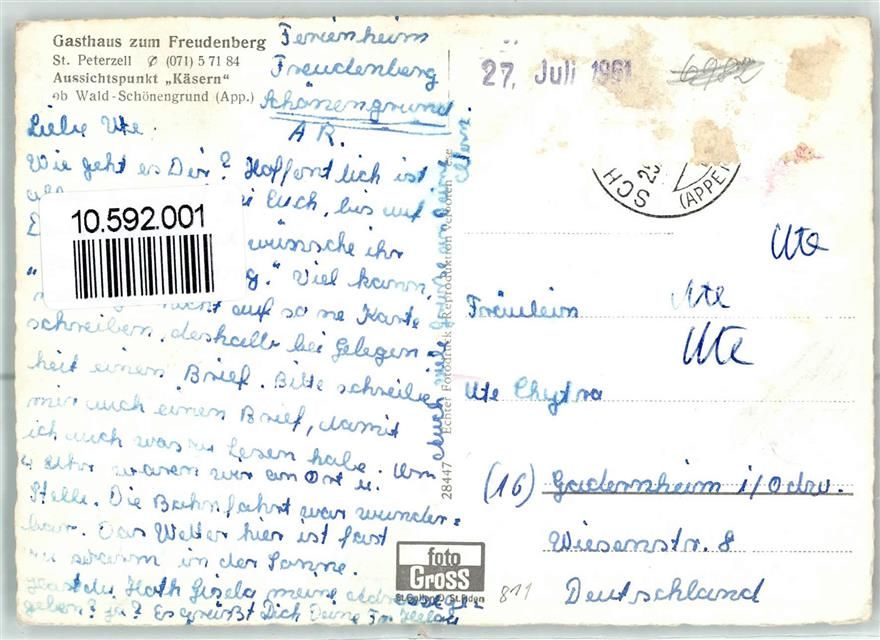 Gasthaus zum Freudenberg
St. Peterzell ✆ (071) 5 71 84
Aussichtspunkt „Käsern“
ob Wald-Schönengrund (App.)
Ferienheim
Freudenberg
Schönengrund
AR.
Liebe Ute.
Wie geht es Dir? Hoffent lich ist
Euch, bis auf
10.592.001
wünsche ihr
g." Viel kann,
nicht auf so ne Karte
schreiben, deshalb bei Gelegen-
heit einen Brief. Bitte schreibe
mir auch einen Brief, damit
ich auch was zu lesen habe. Um
4 Uhr waren wir an Ort u.
Stelle. Die Bahnfahrt war wunder=
bar. Das Wetter hier ist fast
zu warm in der Sonne.
Hast du Gisela meine
geben? ja? Es grüßt Dich Deine
Auch viele Grüße an deine
Eltern.
28447 Echter Fotodruck - Reproduktion verboten
foto
GROSS
St. Gallen
811
27. Juli 1961
6982
SCH
(APPE
Ute
Ute
Fräulein
Ute
Ute Chytra
(16) Gadernheim i/Odw.
Wiesenstr. 8
Deutschland